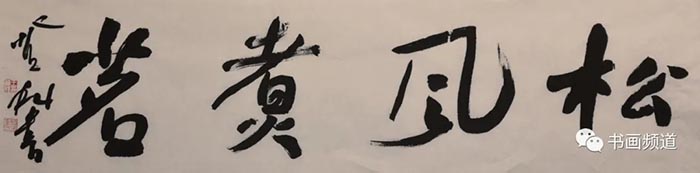 松风煮茗
书画频道